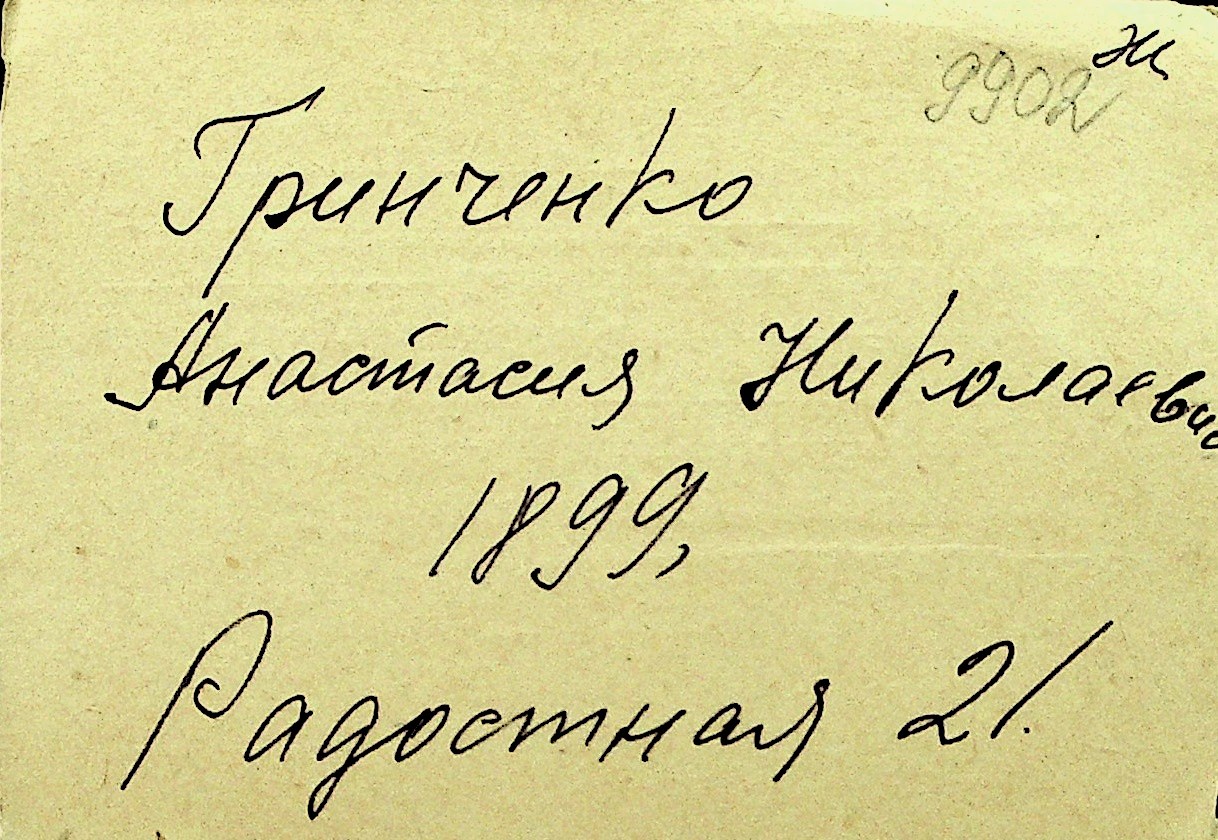 9902 Ж
Гринченко
Анастасия Николаевна
1899,
Радостная 21.